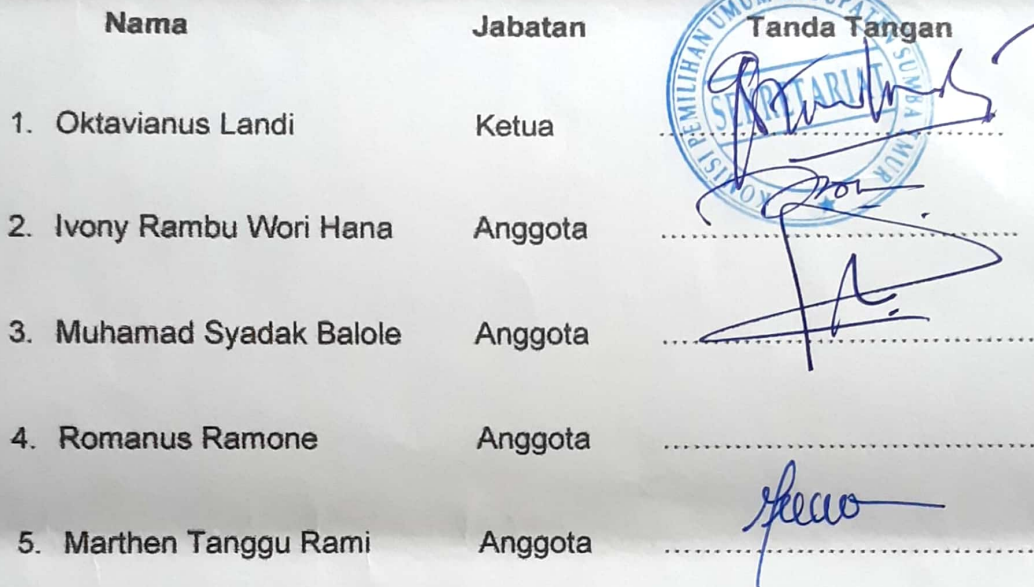 Nama Jabatan Tanda Tangan
1. Oktavianus Landi Ketua ........................
2. Ivony Rambu Wori Hana Anggota ........................
3. Muhamad Syadak Balole Anggota ........................
4. Romanus Ramone Anggota ........................
5. Marthen Tanggu Rami Anggota ........................
KOMISI PEMILIHAN UMUM KABUPATEN SUMBA TIMUR
SEKRETARIAT